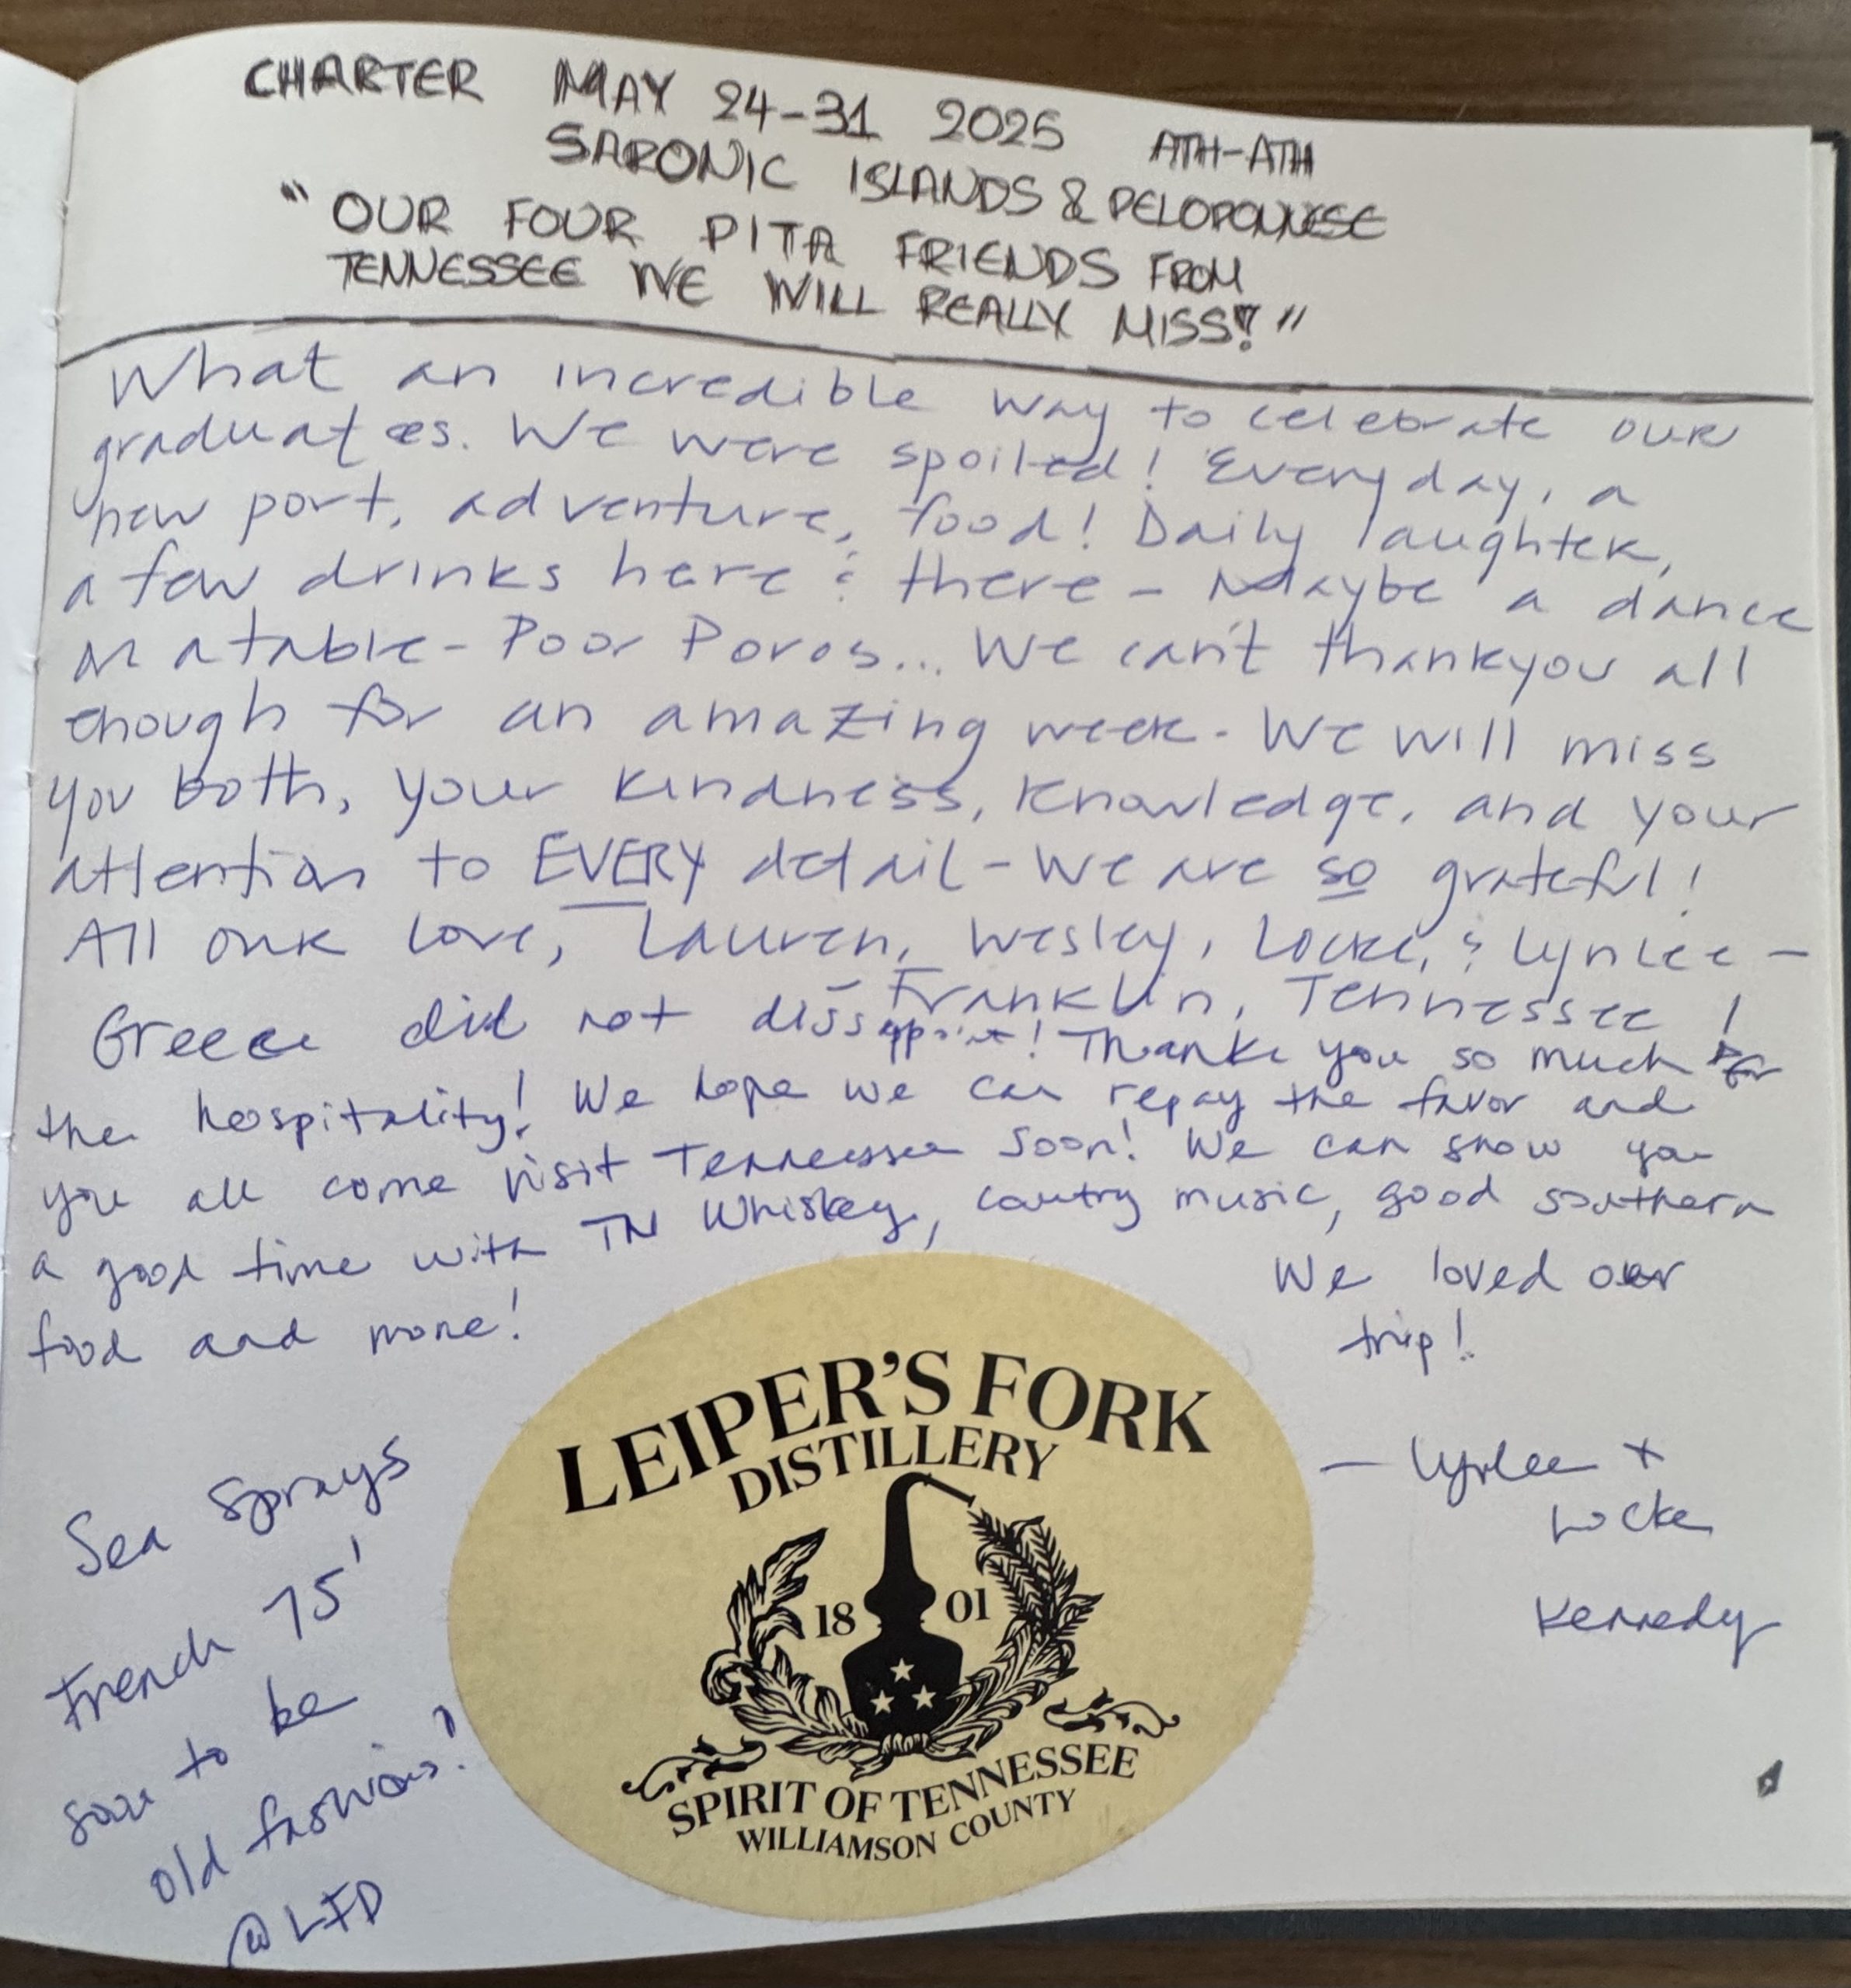 CHARTER MAY 24-31 2025 ATH-ATH
SARONIC ISLANDS & PELOPONNESE
"OUR FOUR PITA FRIENDS FROM
TENNESSEE WE WILL REALLY MISS!"
What an incredible way to celebrate our
graduates. We were spoiled! Everyday, a
new port, adventure, food! Daily laughter,
a few drinks here & there - Maybe a dance
on a table - Poor Poros... We can't thankyou all
enough for an amazing week. We will miss
you both, your kindness, knowledge, and your
attention to EVERY detail - We are so grateful!
All our love, Lauren, Wesley, Locke, & Lynlee -
- Franklin, Tennessee!
Greece did not dissappoint! Thanks you so much for
the hospitality! We hope we can repay the favor and
you all come visit Tennessee soon! We can show you
a good time with TN Whiskey, country music, good southern
food and more!
We loved our
trip!
- Lynlee +
Locke
Kennedy
Sea Sprays
French 75'
soon to be
old fashions!
@LFD
LEIPER'S FORK
DISTILLERY
18 01
SPIRIT OF TENNESSEE
WILLIAMSON COUNTY